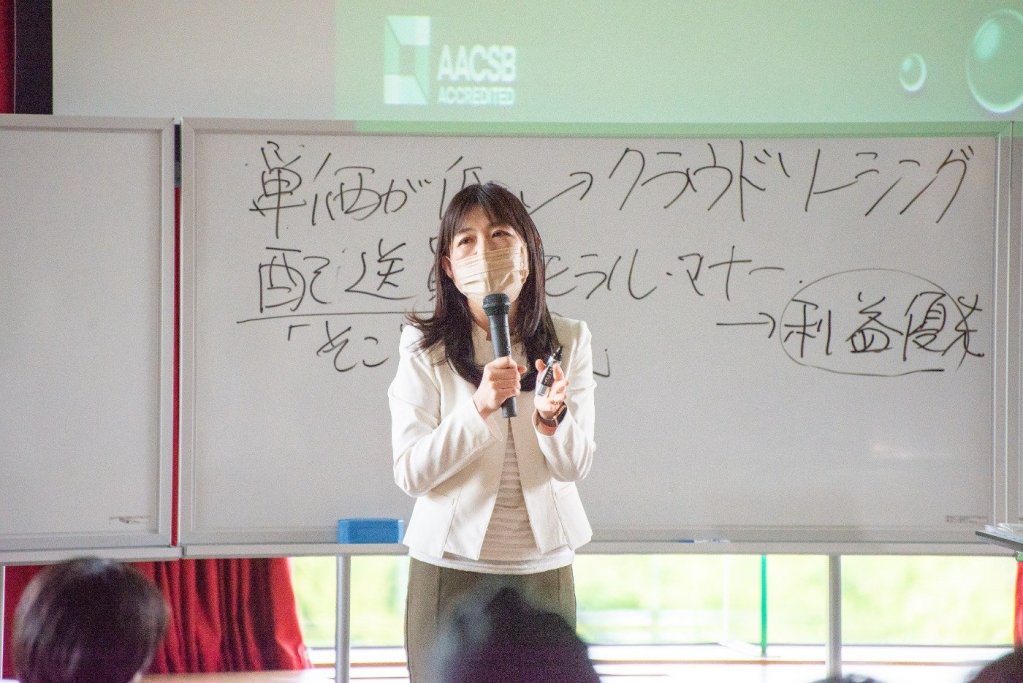 AACSB
ACCREDITED
単価が低 → クラウドソーシング
配送 モラル・マナー
「そこ 」
→ 利益優先